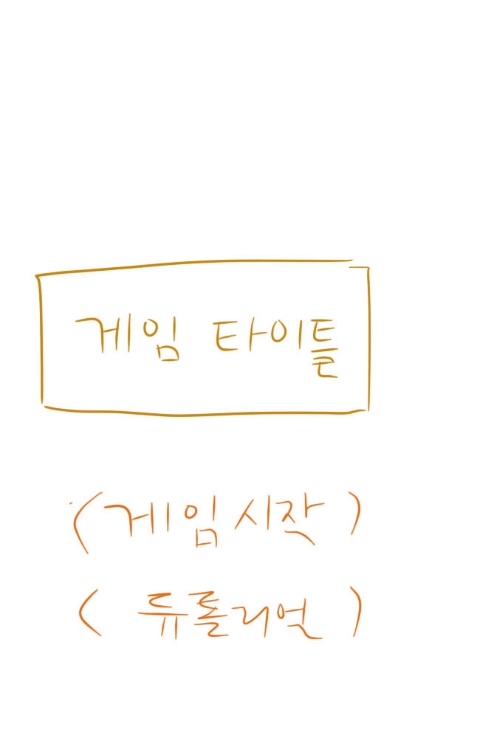 게임 타이틀
(게임시작)
(튜톨리얼)